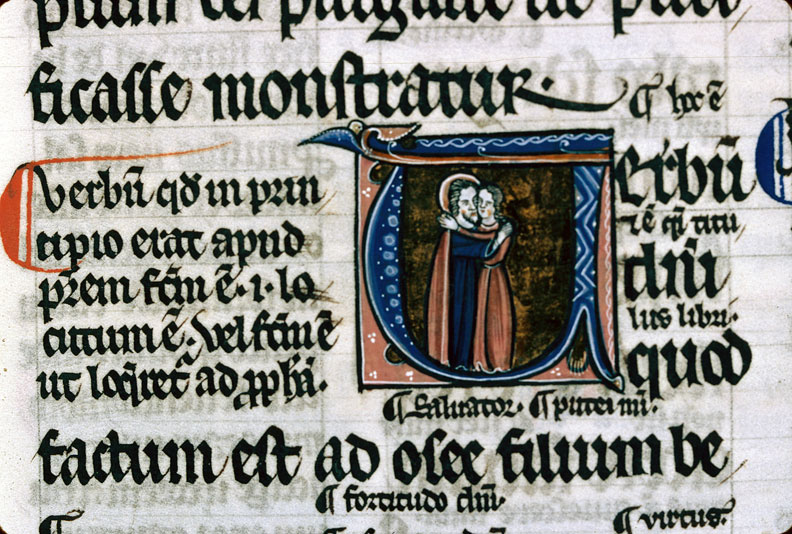 ticasse monstratur.
¶ hec ē
Verbū qd in prin
cipio erat apud
prēm fcm ē .i. lo
cutum ē. Vel fcm ē
ut loqret ad pphā.
Verbū
dn̄i
lus libri.
quod
¶ Salvator. ¶ putei mī.
factum est ad osee filium be
¶ fortitudo dn̄i.
¶ virtus.